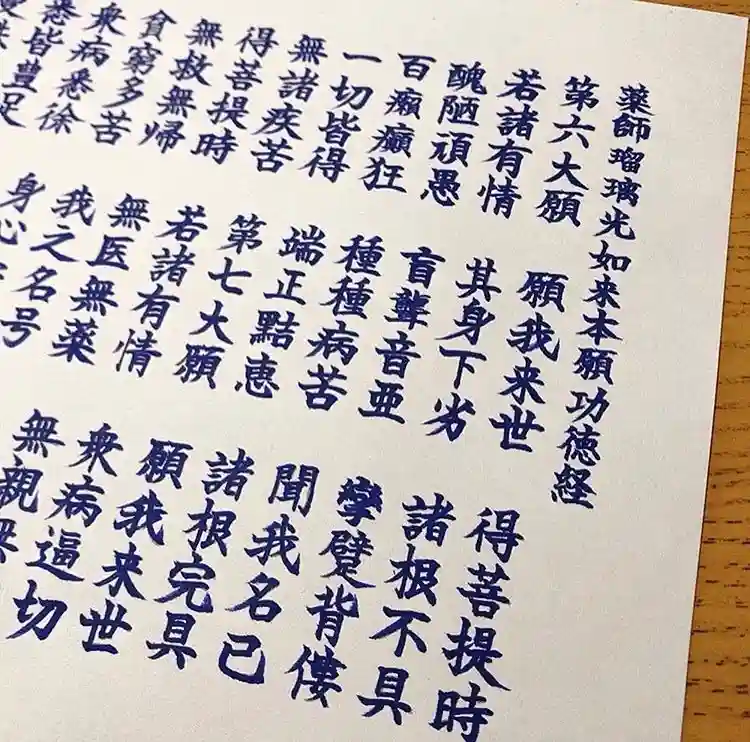 薬師瑠璃光如来本願功徳経
第六大願　願我来世　得菩提時
若諸有情　其身下劣　諸根不具
醜陋頑愚　盲聾音亜　攣躄背僂
百癩癲狂　種種病苦　聞我名已
一切皆得　端正點恵　諸根完具
無諸疾苦　第七大願　願我来世
得菩提時　若諸有情　衆病逼切
無救無帰　無医無薬　無親無
貧窮多苦　我之名号
衆病悉徐　身心
悉皆豊足